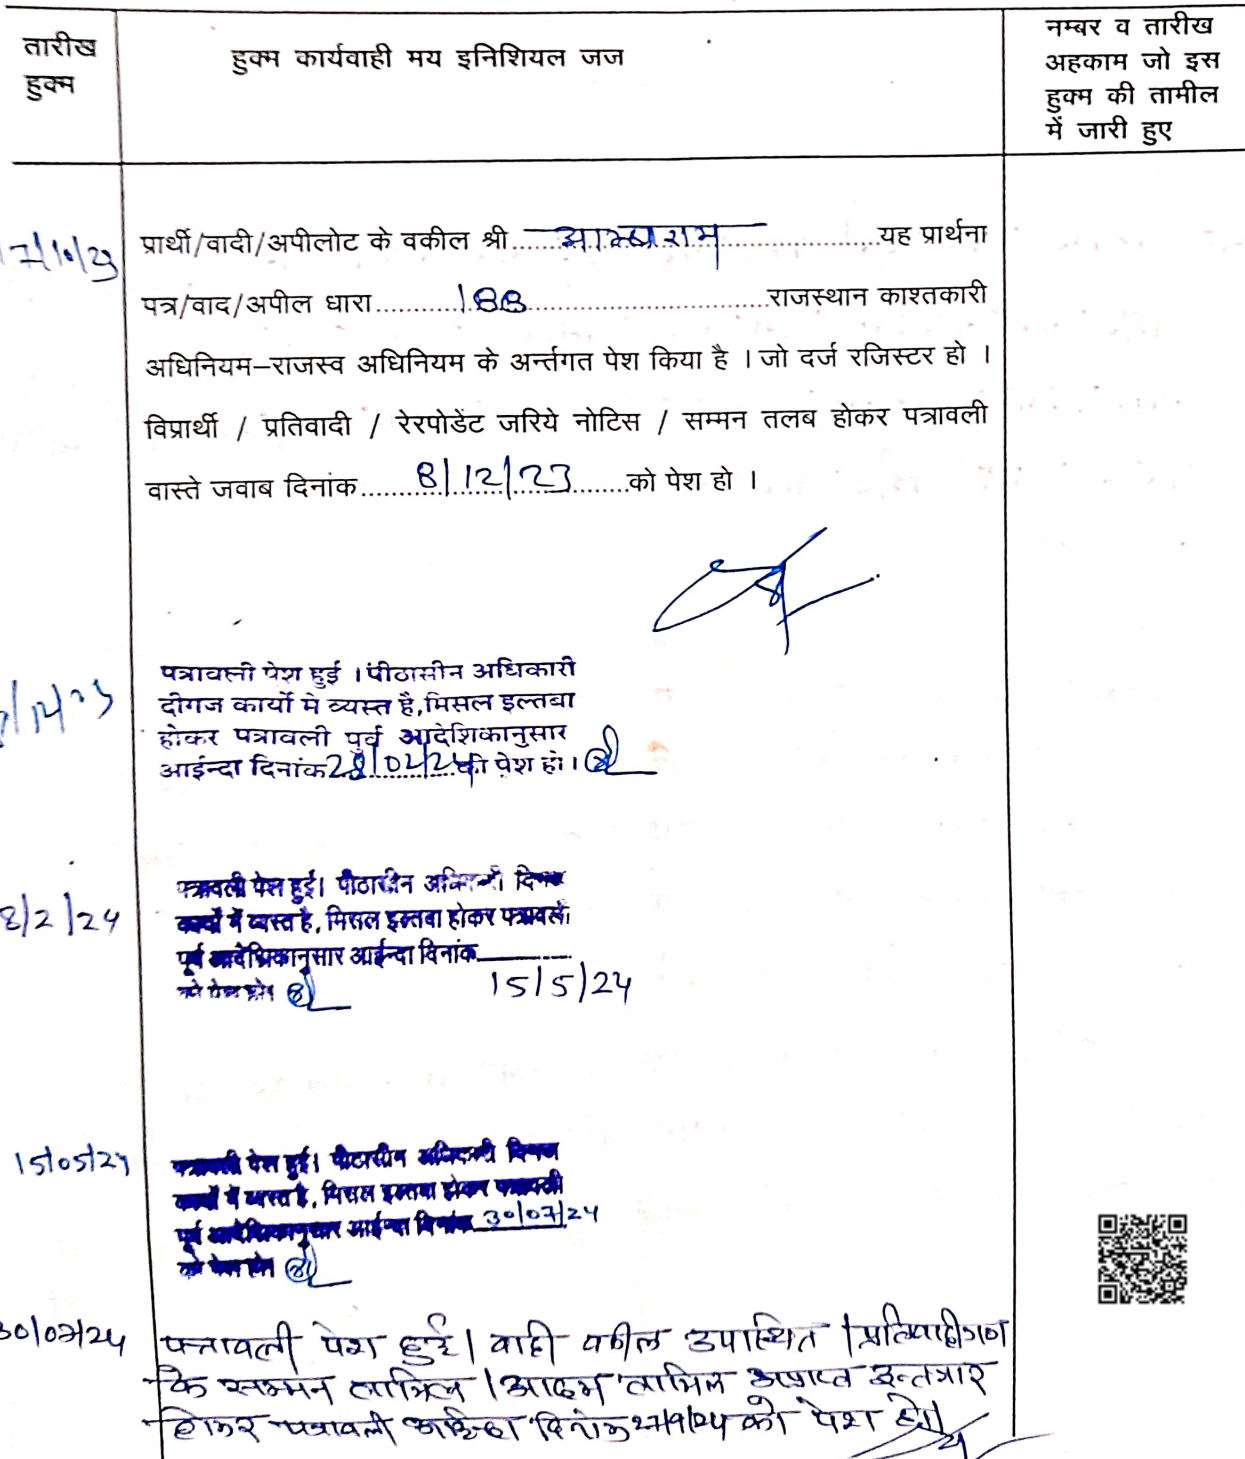 तारीख
हुक्म
हुक्म कार्यवाही मय इनिशियल जज
नम्बर व तारीख
अहकाम जो इस
हुक्म की तामील
में जारी हुए
7/10/23
प्रार्थी/वादी/अपीलोट के वकील श्री.....................यह प्रार्थना
पत्र/वाद/अपील धारा..........188..........राजस्थान काश्तकारी
अधिनियम–राजस्व अधिनियम के अर्न्तगत पेश किया है । जो दर्ज रजिस्टर हो ।
विप्रार्थी / प्रतिवादी / रेरपोडेंट जरिये नोटिस / सम्मन तलब होकर पत्रावली
वास्ते जवाब दिनांक......8/12/23......को पेश हो ।
पत्रावली पेश हुई । पीठासीन अधिकारी
दीगज कार्यो मे व्यस्त है, मिसल इल्तबा
होकर पत्रावली पुर्व आदेशिकानुसार
आईन्दा दिनांक 28/02/24 को पेश हो ।
8/2/24
पत्रावली पेश हुई। पीठासीन
कार्यो में व्यस्त है, मिसल इल्तबा होकर पत्रावली
पूर्व आदेशिकानुसार आईन्दा दिनांक
को पेश हो।
15/5/24
15/05/24
पत्रावली पेश हुई। पीठासीन
कार्यो में व्यस्त है, मिसल इल्तबा होकर पत्रावली
पूर्व आदेशिकानुसार आईन्दा दिनांक 30/07/24
को पेश हो।
30/07/24
पत्रावली पेश हुई। वादी वकील उपास्थित । प्रतिवादीगण
के सम्मन तामिल । आदम तामिल अप्राप्त इन्तजार
होकर पत्रावली आईन्दा दिनांक 27/9/24 को पेश हो।